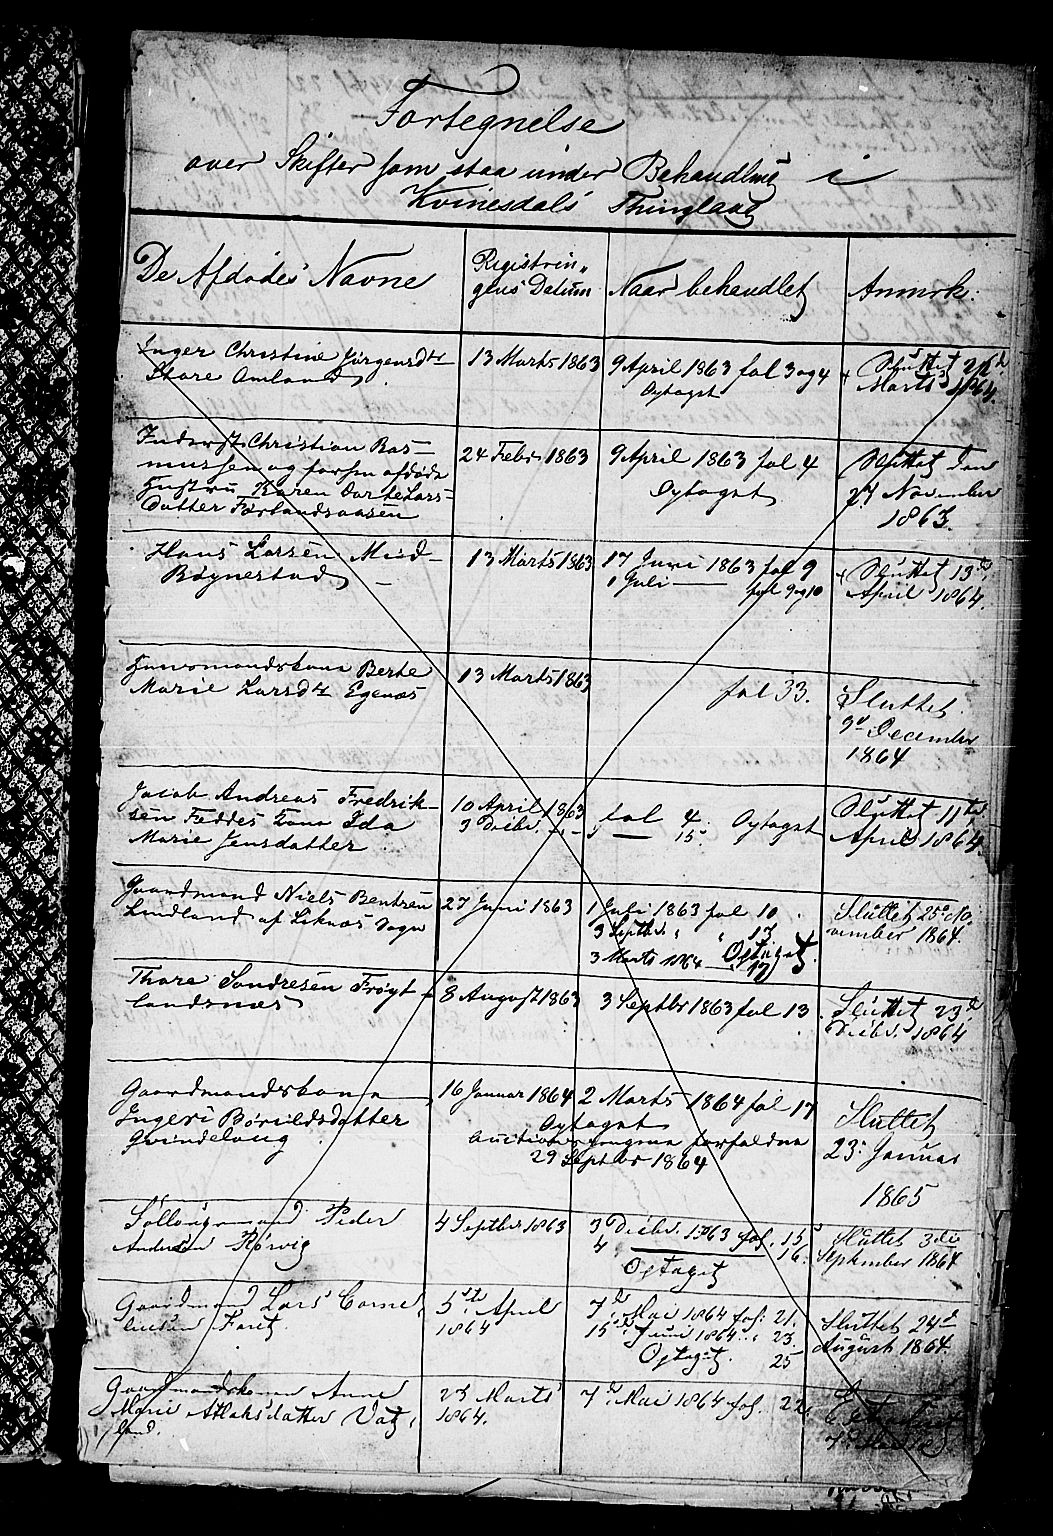 Fortegnelse
over Skifter som staa under Behandling i
Kvinesdals Thinglaug
De Afdødes Navne
Registrin„
gens Datum
Naar behandlet
Anmrk.
Inger Christine Jørgensdtr
Store Amland
13 Marts 1863
9 April 1863 fol 3 og 4
Optaget
Sluttet
Marts 1864.
Christian Ras–
mussen og forhen afdøde
Hustru Karen Dorte Lars–
datter Førlandsaasen
24 Febr 1863
9 April 1863 fol 4
Optaget
Sluttet den
November
1863.
Hans Larsen Mid–
Røgnestad
13 Marts 1863
17 Juni 1863 fol 9
1 Juli — fol 9 og 10
Sluttet 13de
April 1864.
Huusmandskone Berte
Marie Larsdtr Egenæs
13 Marts 1863
fol 33.
Sluttet
9d December
1864
Jacob Andreas Fredrik–
sen Feddes Kone Ida
Marie Jensdatter
10 April 1863
3 Decbr. –„–
fol 4. Optaget
— 15
Sluttet 11te
April 1864.
Gaardmand Niels Bentsen
Lindland af Liknæs Sogn
27 Juni 1863
1 Juli 1863 fol 10
3 Septbr. „ „ 13
3 Marts 1864 — 17
Optaget
Sluttet 25d No
vember 1864.
Thore Sondresen Frøyt
landsnæs
8 August 1863
3 Septbr 1863 fol 13
Sluttet 23d
Decbr. 1864
Gaardmandskone
Ingeri Børildsdatter
Gvindelaug
16 Januar 1864
2 Marts 1864 fol 17
Optaget
forfaldne
29 Septbr 1864
Sluttet
23. Januar
1865
Peder
Andersen Rørvig
4 Septber 1863
3d Decbr. 1863 fol. 15
4 — 16.
Optaget
Sluttet 3die
September 1864
Gaardmand Lars Corne
liusen
5te April
1864
7d. Mai 1864 fol: 21.
15d. Juni 1864 „ 23
Optaget. 25
Sluttet 24d
August 1864.
Gaardmandskone Anne
Marie Atlaksdatter Vatz
land.
23 Marts
1864.
7d. Mai 1864 fol. 22.